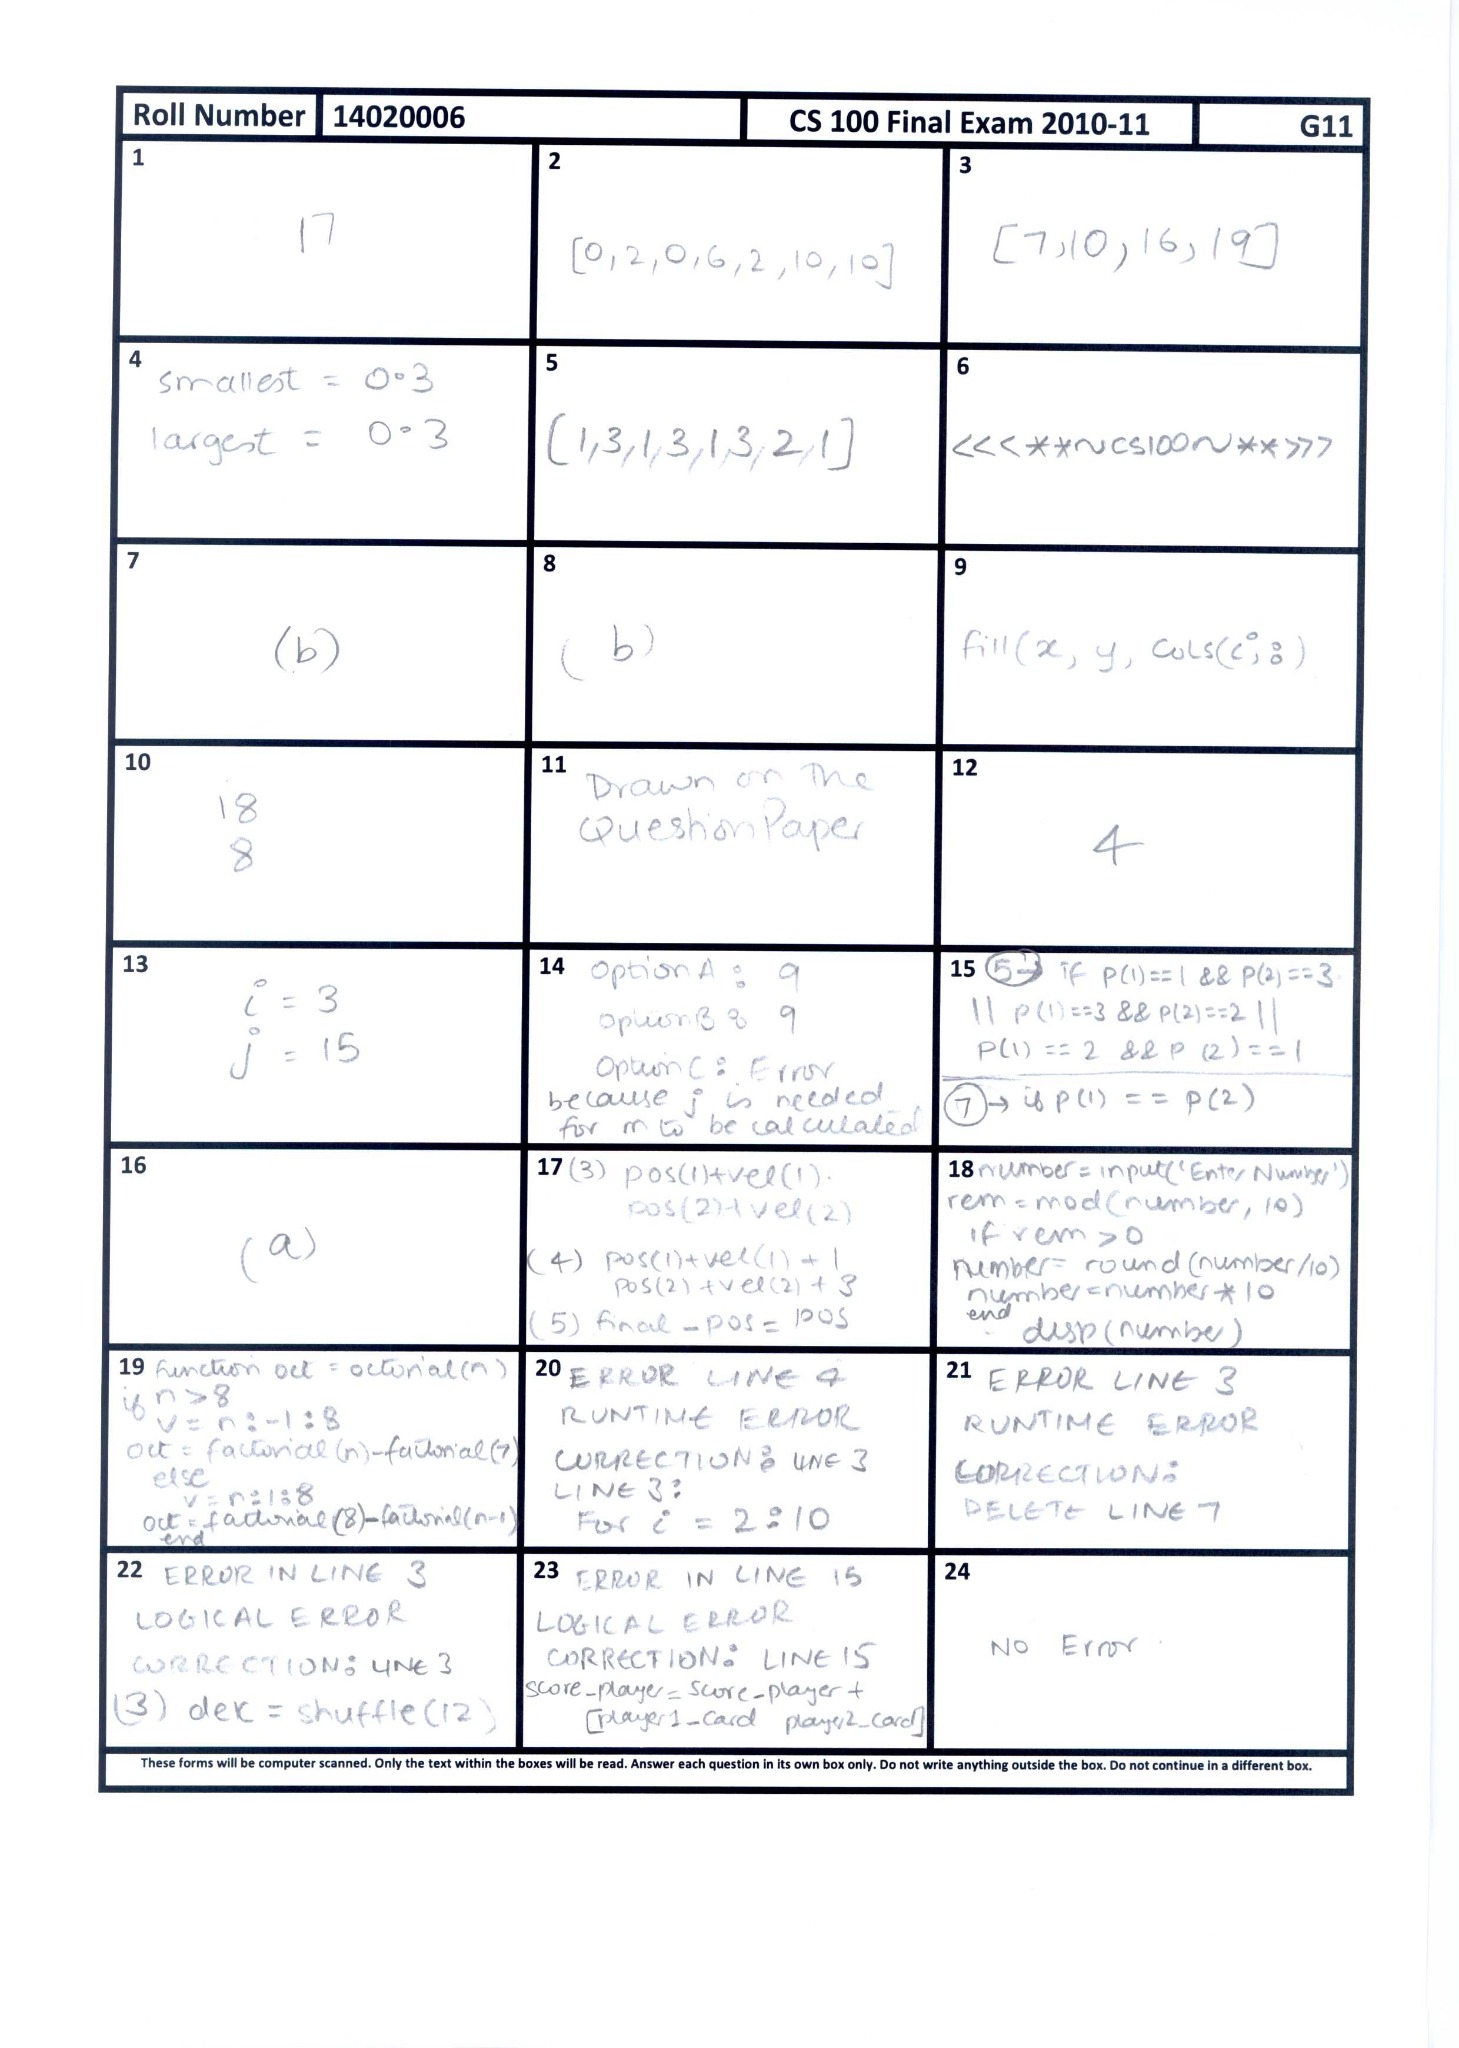 Roll Number 14020006 CS 100 Final Exam 2010-11 G11
1
17
2
[0,2,0,6,2,10,10]
3
[7,10,16,19]
4
smallest = 0.3
largest = 0.3
5
[1,3,1,3,1,3,2,1]
6
<<<**~CS100~**>>>
7
(b)
8
(b)
9
fill(x, y, cols(i,:)
10
18
8
11
Drawn on The
Question Paper
12
4
13
i = 3
j = 15
14
Option A : 9
Option B : 9
Option C : Error
because j is needed
for m to be calculated
15
5→ if p(1)==1 && p(2)==3
|| p(1)==3 && p(2)==2 ||
p(1) == 2 && p(2)==1
7→ if p(1) == p(2)
16
(a)
17
(3) pos(1)+vel(1).
pos(2)+vel(2)
(4) pos(1)+vel(1) + 1
pos(2)+vel(2) + 3
(5) final_pos = pos
18
number = input('Enter Number')
rem = mod(number, 10)
if rem > 0
number = round(number/10)
number = number * 10
end
disp(number)
19
function oct = octorial(n)
if n > 8
v = n:-1:8
oct = factorial(n)-factorial(7)
else
v = n:1:8
oct = factorial(8)-factorial(n-1)
end
20
ERROR LINE 4
RUNTIME ERROR
CORRECTION: LINE 3
LINE 3:
For i = 2:10
21
ERROR LINE 3
RUNTIME ERROR
CORRECTION:
DELETE LINE 7
22
ERROR IN LINE 3
LOGICAL ERROR
CORRECTION: LINE 3
(3) dek = shuffle(12)
23
ERROR IN LINE 15
LOGICAL ERROR
CORRECTION: LINE 15
score_player = score_player +
[player1_card player2_card]
24
NO Error
These forms will be computer scanned. Only the text within the boxes will be read. Answer each question in its own box only. Do not write anything outside the box. Do not continue in a different box.